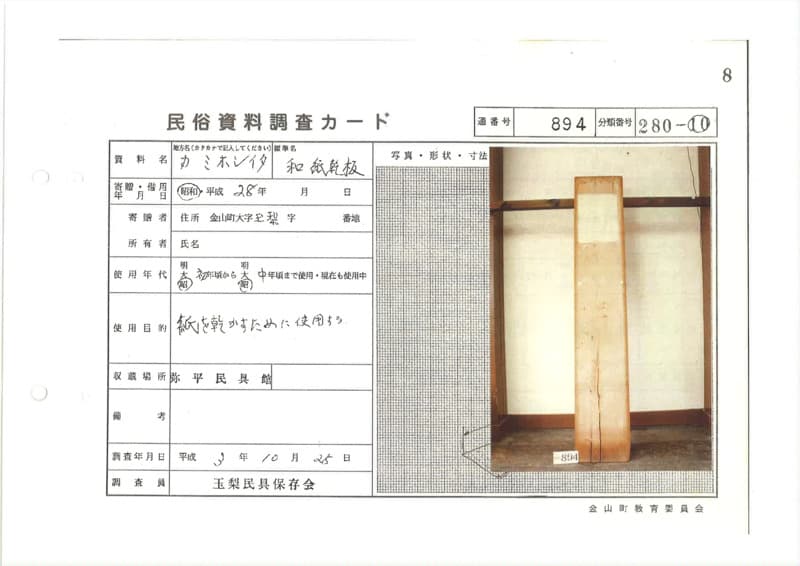 8
民俗資料調査カード
通番号 894 分類番号 280-10
資料名 地方名(カタカナで記入してください) カミホシイタ 標準名 和紙乾板
写真・形状・寸法
寄贈・借用年月日 昭和・平成 28年 月 日
寄贈者 住所 金山町大字玉梨字 番地
所有者 氏名
使用年代 明大昭 初年頃から 明大昭 中年頃まで使用・現在も使用中
使用目的 紙を乾かすために使用する
収蔵場所 弥平民具館
備考
調査年月日 平成 3年 10月 25日
調査員 玉梨民具保存会
-894
金山町教育委員会